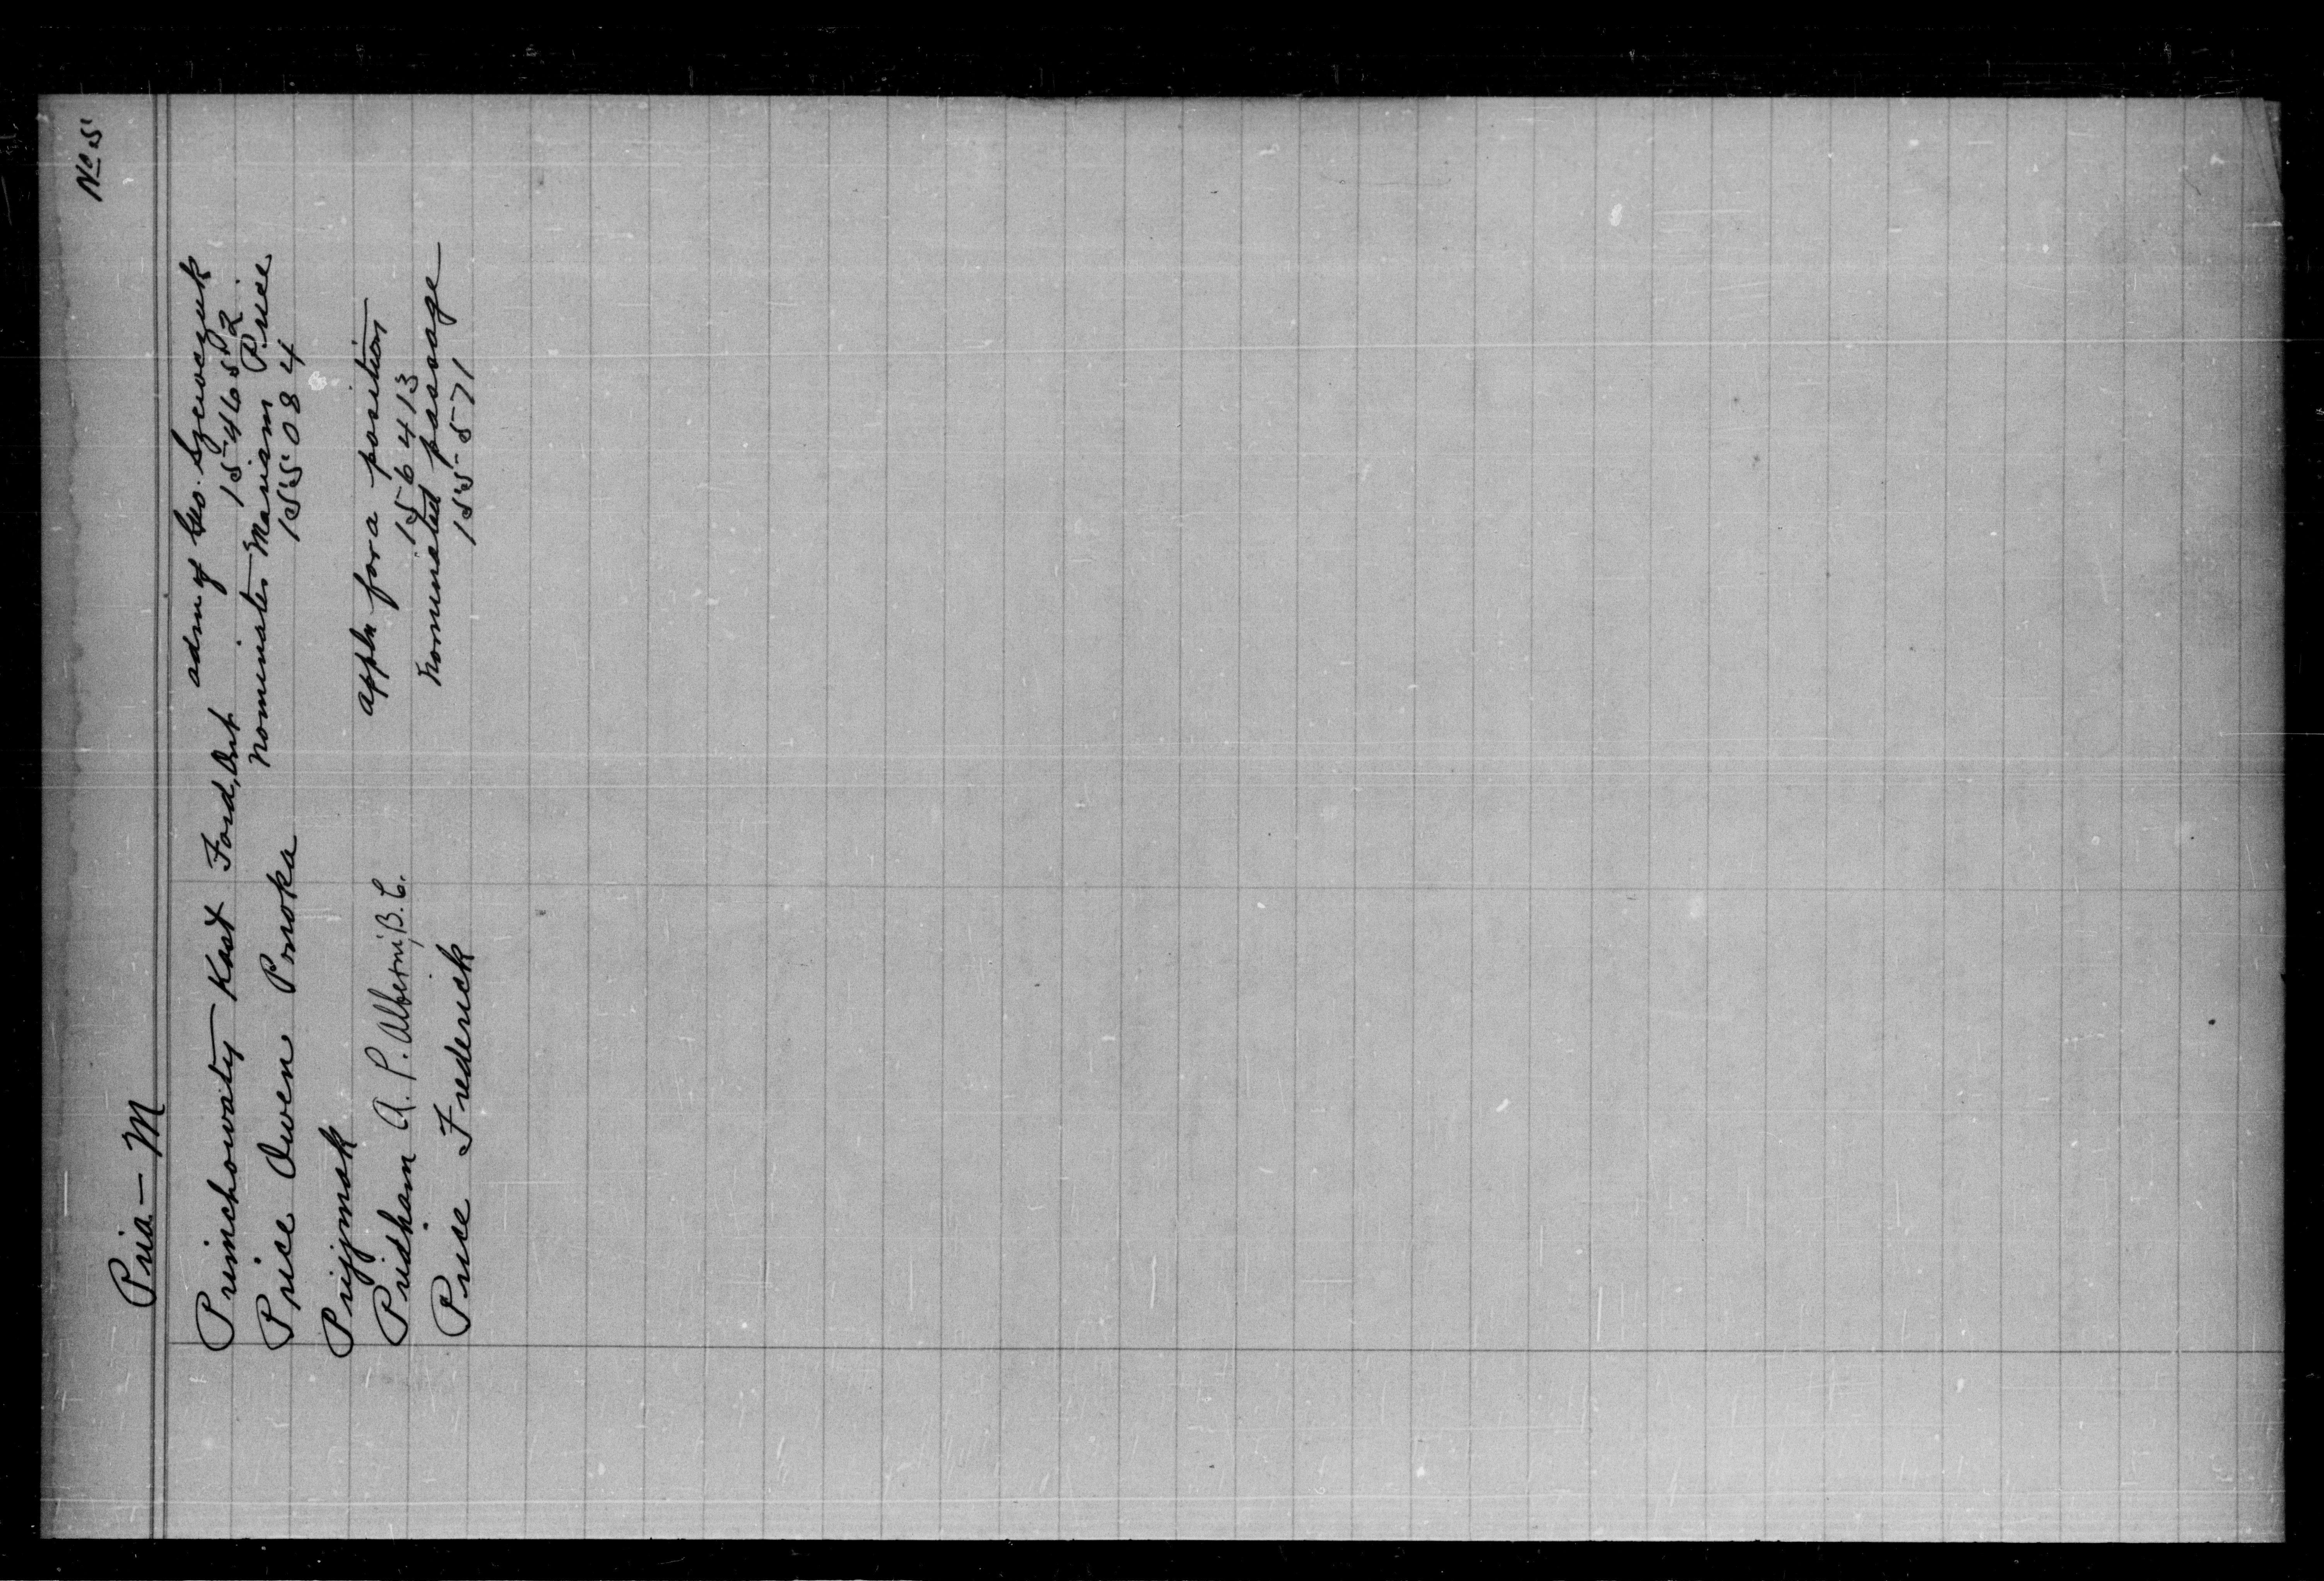 No 5
Pria - M
Primchowaty Kost Ford, Ont admn of Geo. Szewczuk
154652
Price Owen Ponoka Nominates Mariam Price
155084
Prijmak
Pridham A. P. Alberni, B.C. appln for a position
156413
Price Frederick nominated passage
155571